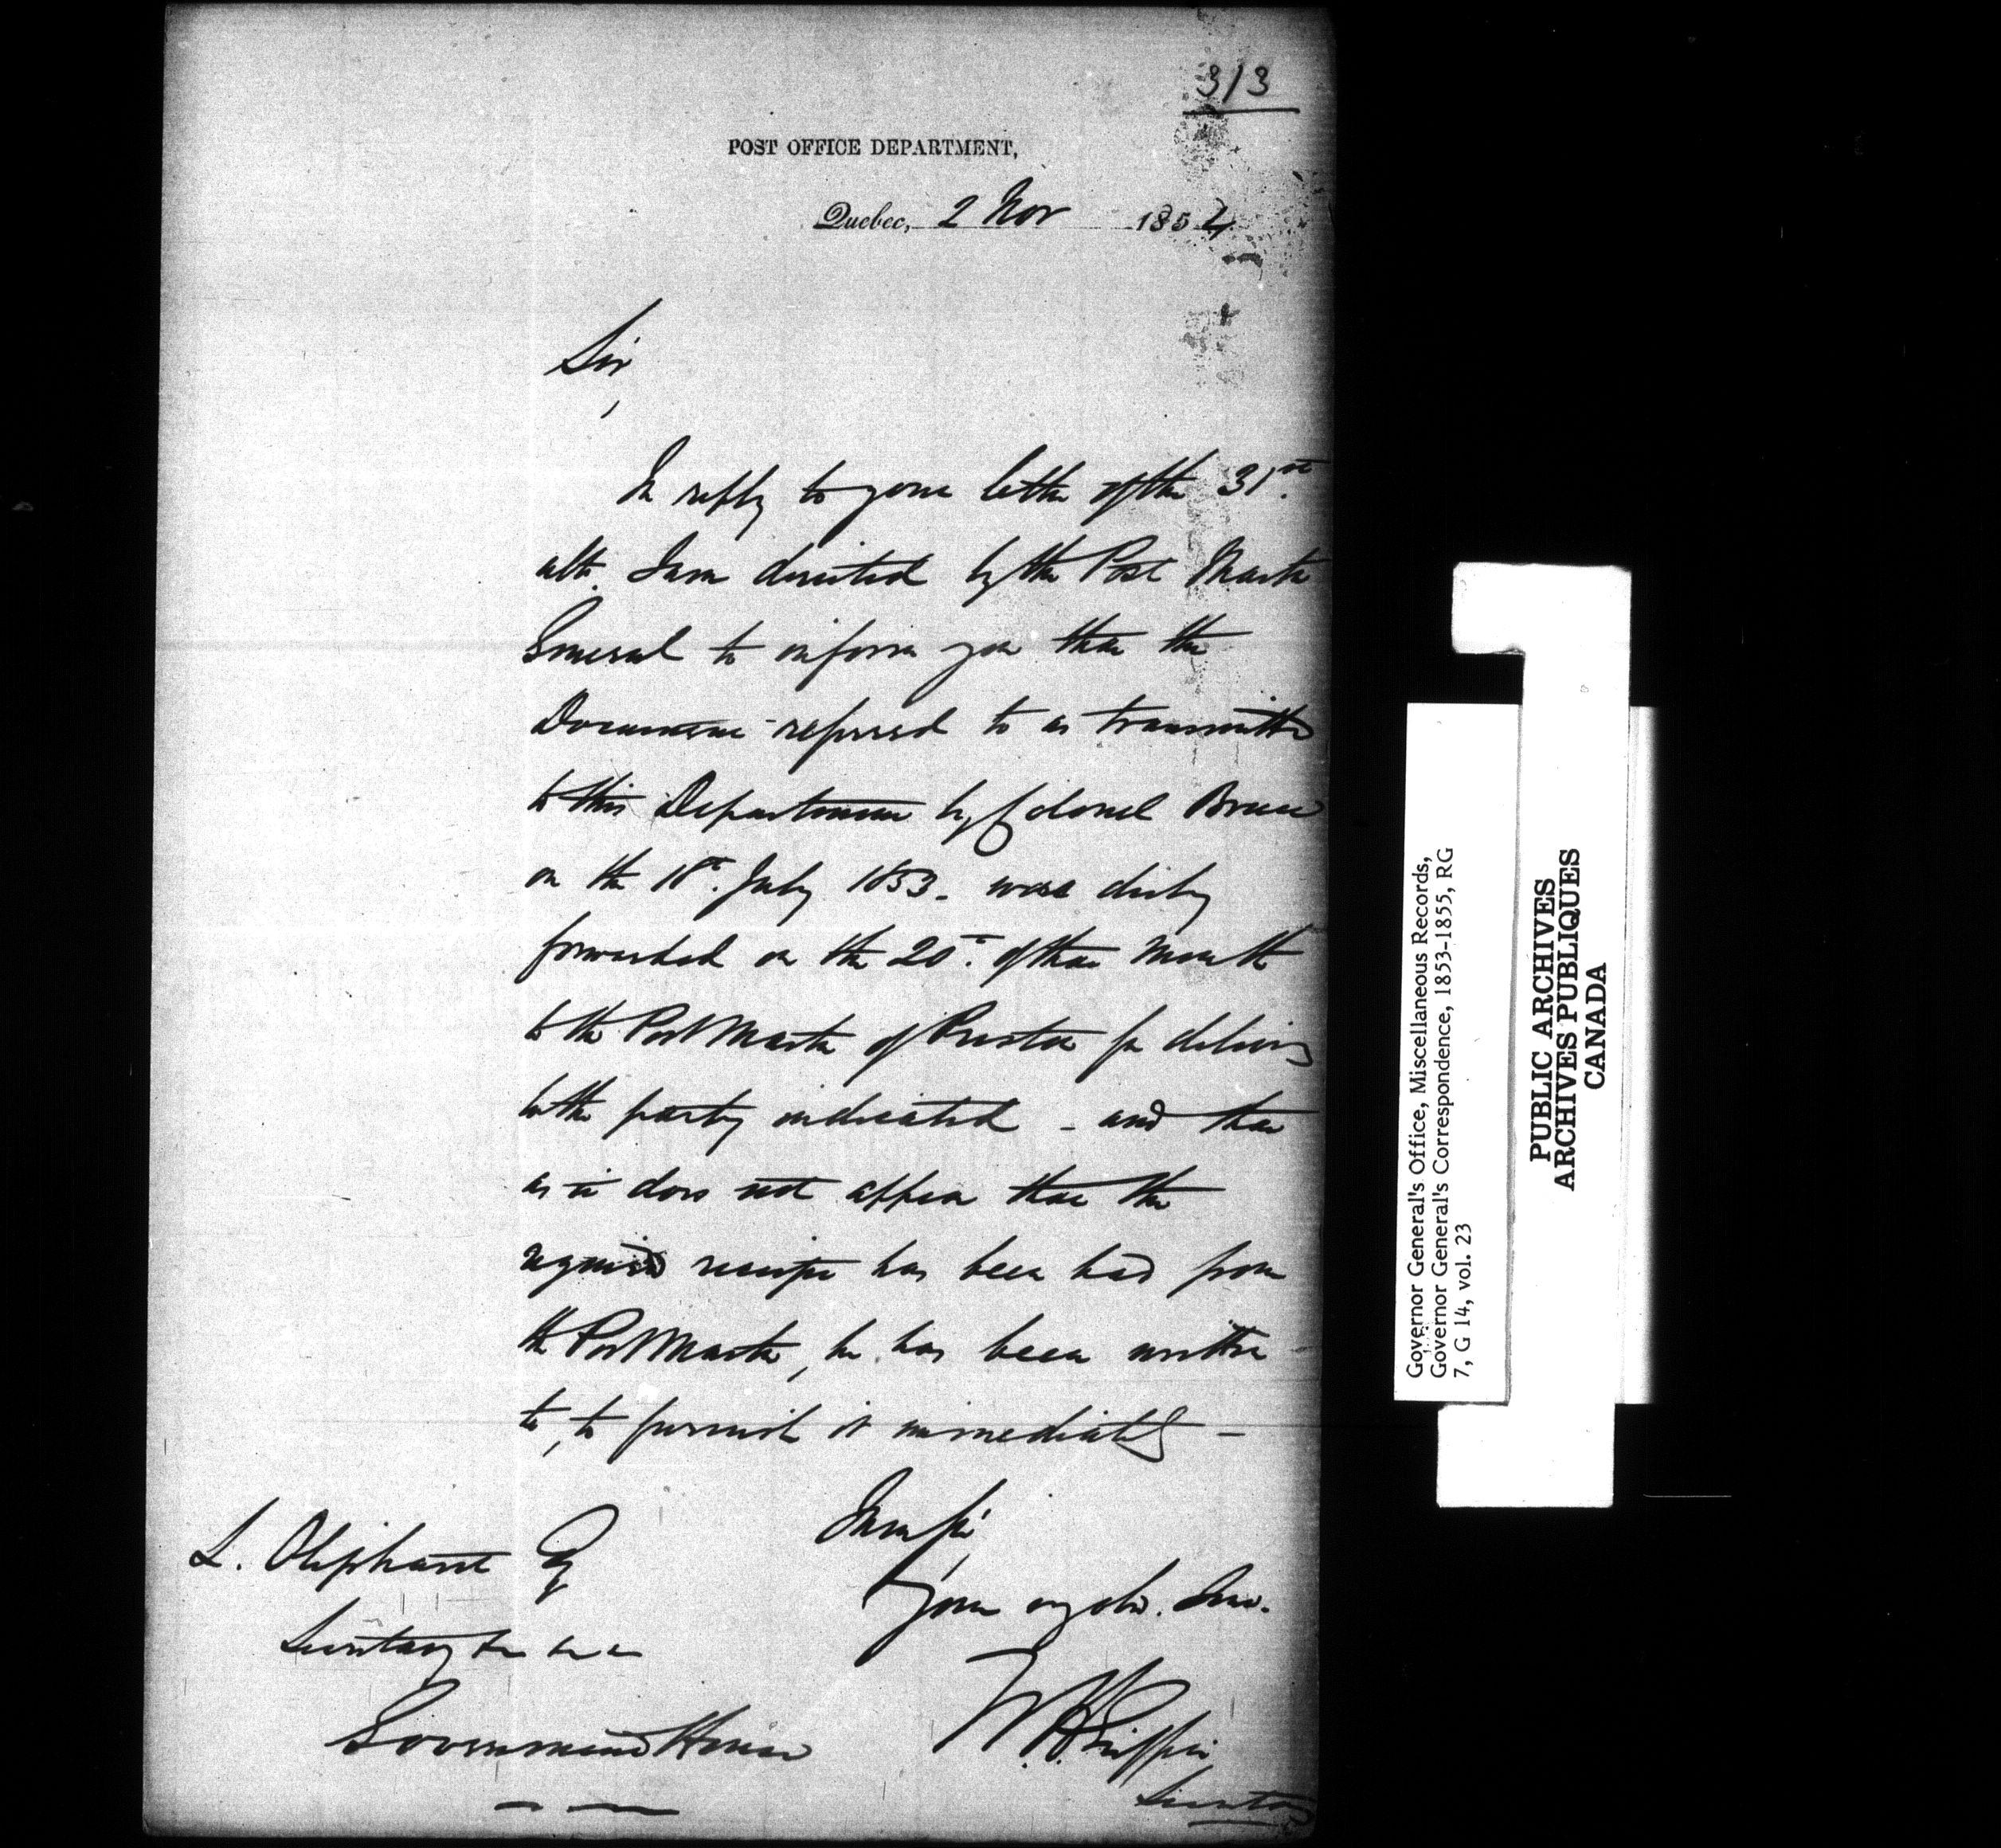 313
POST OFFICE DEPARTMENT,
Quebec, 2 Nov 1854
Sir,
In reply to your letter of the 31st.
ulto. I am directed by the Post Master
General to inform you that the
Document referred to as transmitted
to this Department by Colonel Bruce
on the 18th. July 1853. was duly
forwarded on the 20th. of that month
to the Post Master of Preston for delivery
to the party indicated - and that
as it does not appear that the
required receipt has been had from
the Post Master, he has been written
to, to furnish it immediately -
I am Sir
Your ob. Ser.
W.H. Griffin
Secretary
L. Oliphant Esq
Secretary &c &c &c
Government House
Governor General's Office, Miscellaneous Records,
Governor General's Correspondence, 1853-1855, RG
7, G 14, vol. 23
PUBLIC ARCHIVES
ARCHIVES PUBLIQUES
CANADA